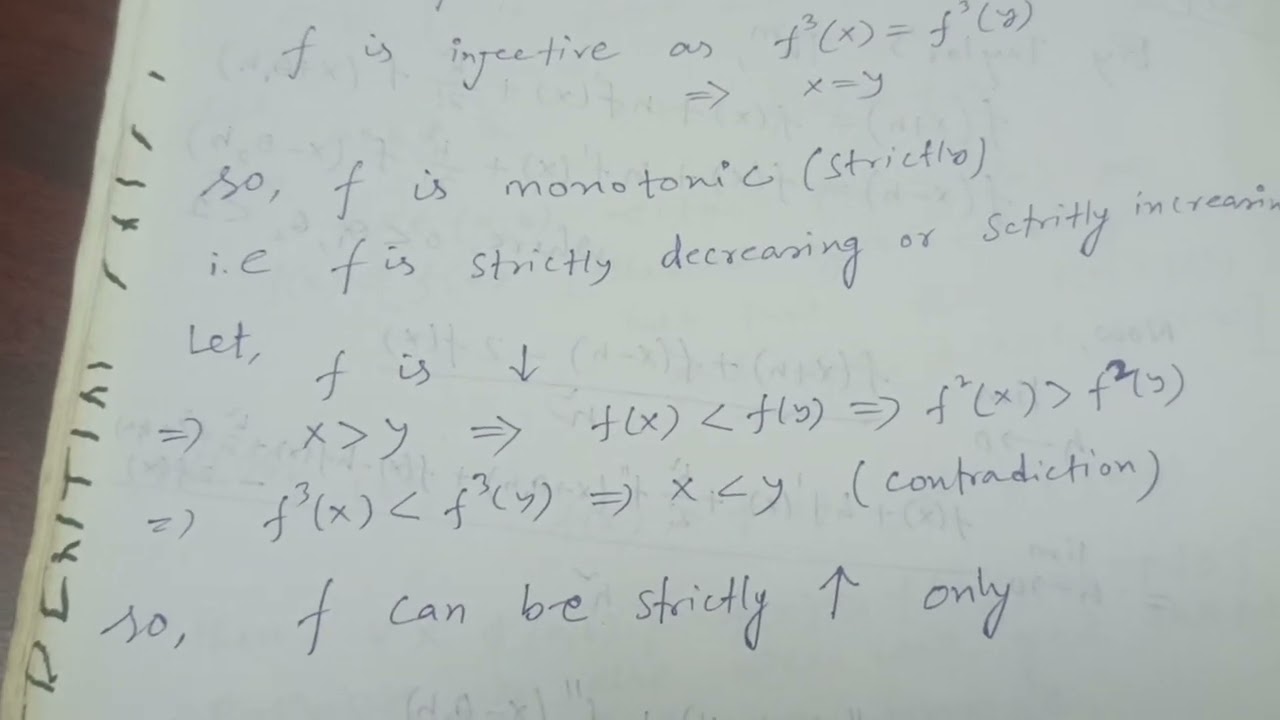 f is injective as f³(x) = f³(y)
=> x=y
so, f is monotonic (strictly)
i.e f is strictly decreasing or sctritly increasin
Let, f is ↓
=> x>y => f(x) < f(y) => f²(x) > f²(y)
=> f³(x) < f³(y) => x < y (contradiction)
so, f can be strictly ↑ only